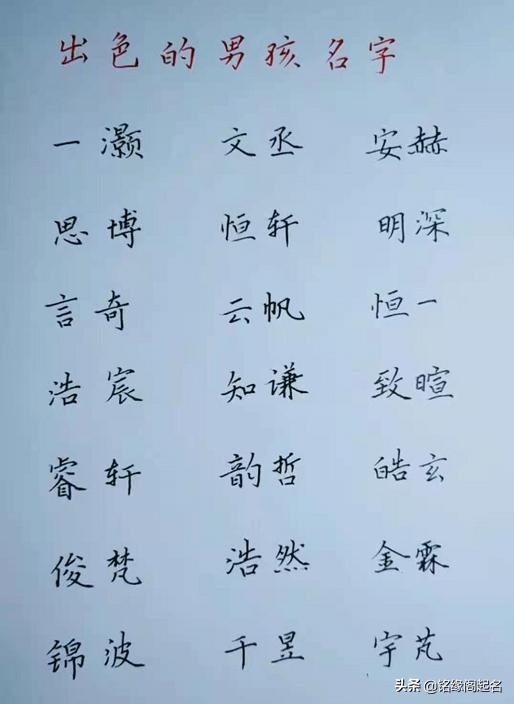 出色的男孩名字
一灏 文丞 安赫
思博 恒轩 明深
言奇 云帆 恒一
浩宸 知谦 致暄
睿轩 韵哲 皓玄
俊梵 浩然 金霖
锦波 千昱 宇芃
头条 @铭缘阁起名